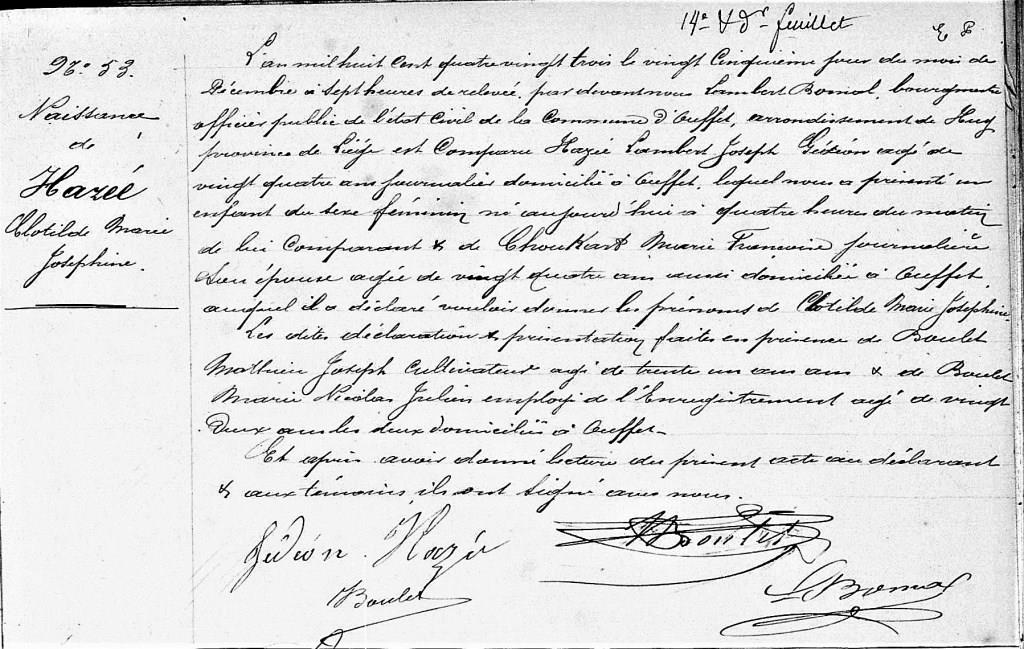 14e & dr feuillet
N° 53.
Naissance
de
Hazée
Clotilde Marie
Josephine.
L'an mil huit cent quatre vingt trois le vingt cinquième jour du mois de
Décembre à sept heures de relevée, par devant nous Lambert Bomal, bourgmestre
officier public de l'état civil de la Commune d'Ouffet, arrondissement de Huy
province de Liége est Comparu Hazée Lambert Joseph Gédéon agé de
vingt quatre ans journalier domicilié à Ouffet, lequel nous a présenté un
enfant du sexe féminin né aujourd'hui à quatre heures du matin
de lui Comparant & de Choukart Marie Françoise journalière
son épouse agée de vingt quatre ans aussi domiciliée à Ouffet,
auquel il a déclaré vouloir donner les prénoms de Clotilde Marie Josephine.
Les dites déclaration & présentation faites en présence de Boulet
Mathieu Joseph Cultivateur agé de trente un ans ans & de Boulet
Marie Nicolas Julien employé de l'Enregistrement agé de vingt
deux ans les deux domiciliés à Ouffet.
Et après avoir donné lecture du présent acte au déclarant
& aux témoins ils ont signé avec nous.
Gédéon Hazée
Boulet
L Bomal